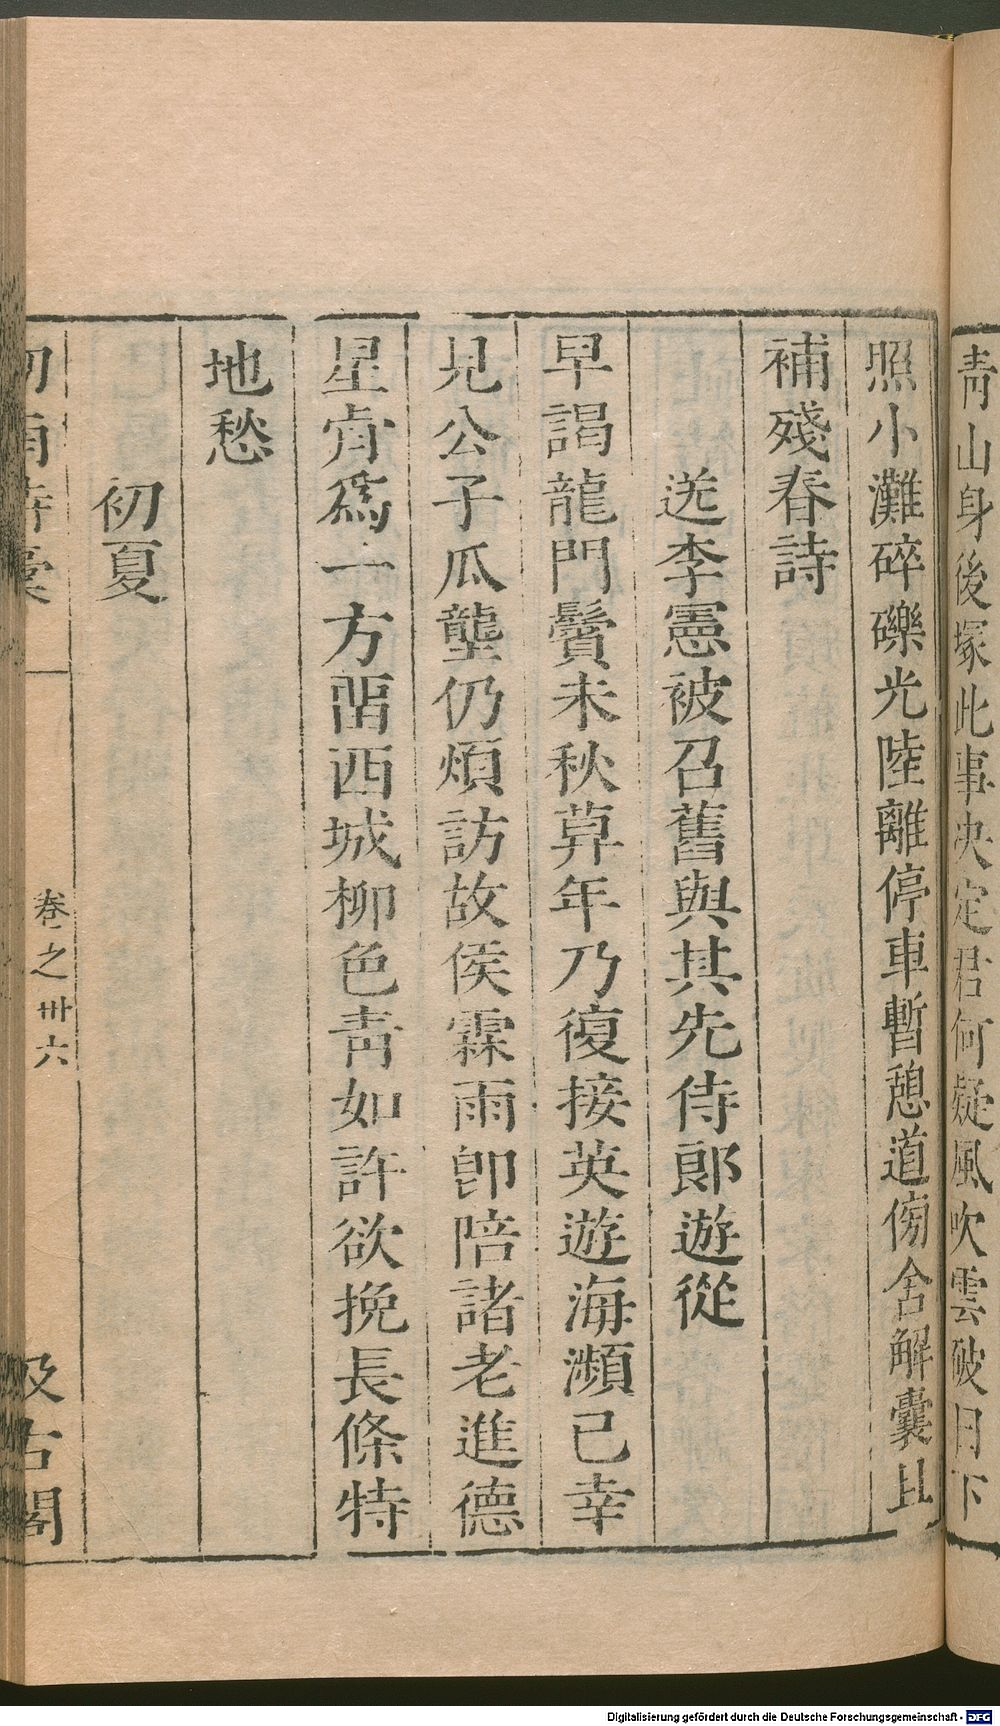 靑山身後塚此事决定君何疑風吹雲破日下
照小灘碎礫光陸離停車暫憩道傍舍解囊且
補殘春詩
送李憲被召舊與其先侍郎遊從
早謁龍門鬢未秋莫年乃復接英遊海瀕已幸
見公子瓜壟仍煩訪故侯霖雨卽陪諸老進德
星肯爲一方畱西城柳色靑如許欲挽長條特
地愁
初夏
卷之卅六
汲古閣
Digitalisierung gefördert durch die Deutsche Forschungsgemeinschaft - DFG